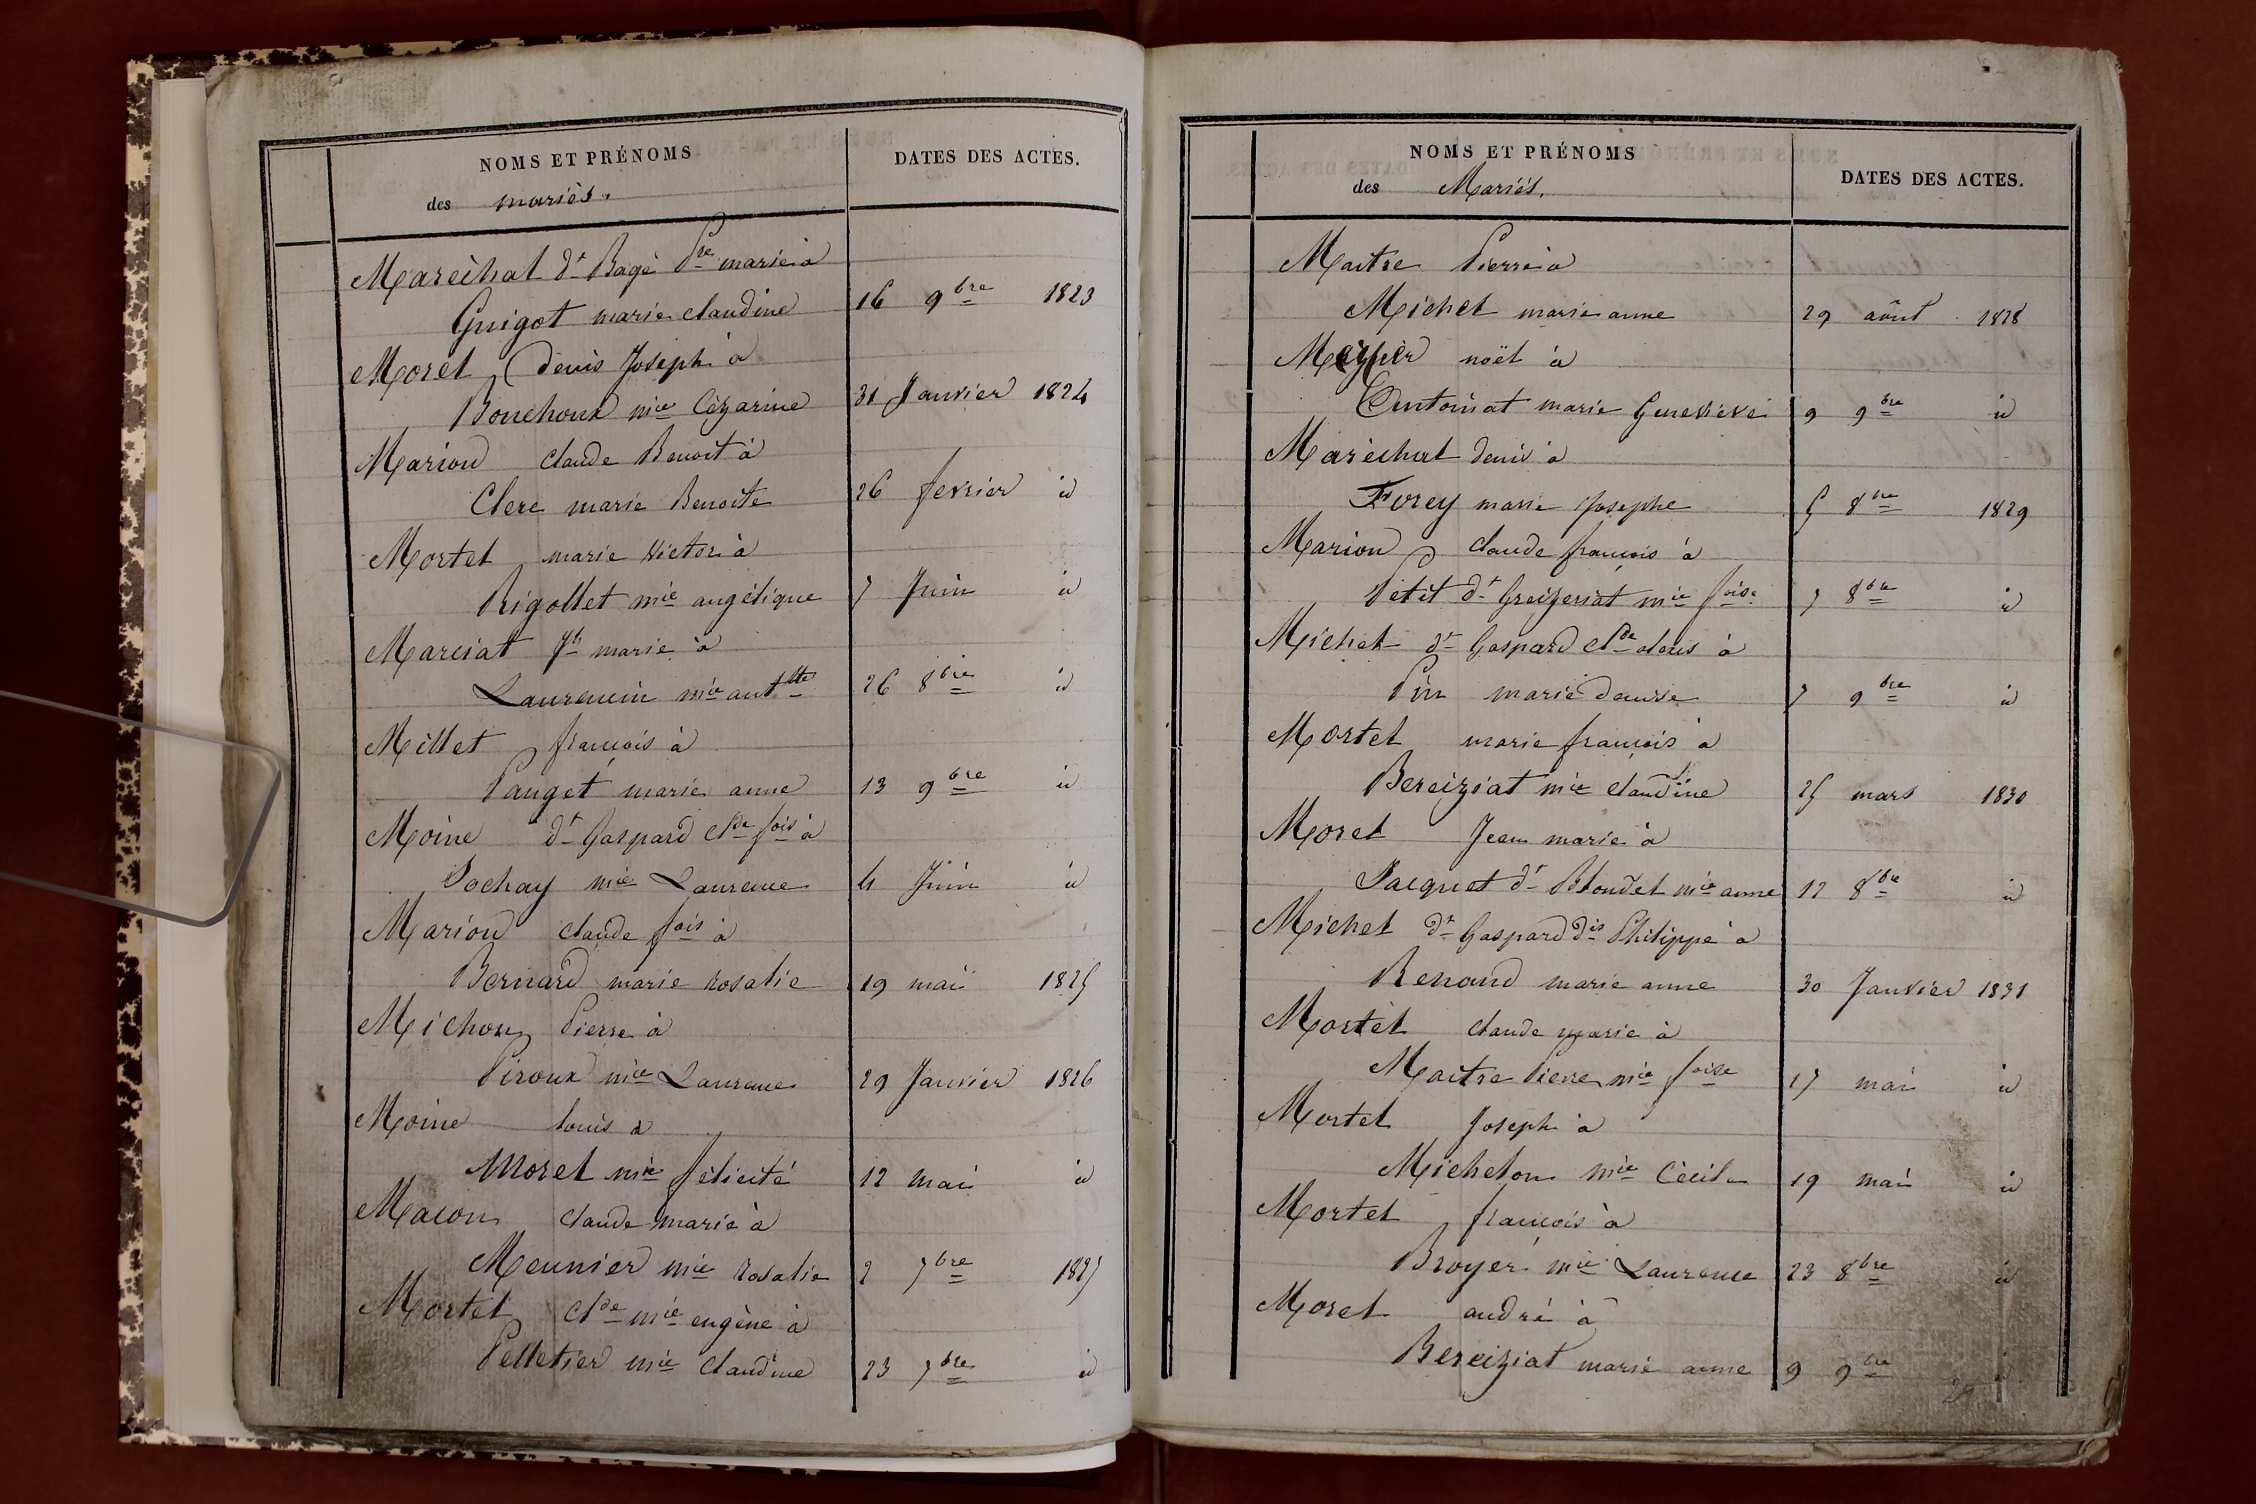 NOMS ET PRÉNOMS
des mariés.
DATES DES ACTES.
Maréchal dt Bagé Pre marie à
Guigot marie claudine 16 9bre 1823
Moret denis Joseph à
Bouchoux mie Cézarine 31 Janvier 1824
Marion claude Benoit à
Clerc marie Benoite 26 fevrier id
Mortel marie victor à
Rigollet mie angélique 7 Juin id
Marciat Jh marie à
Laurencin mie antte 26 8bre id
Millet françois à
Pauget marie anne 13 9bre id
Moine dt Gaspard Cde fois à
Sochay mie Laurence 4 Juin id
Marion claude fois à
Bernard marie rosalie 19 mai 1825
Michon Pierre à
Piroux mie Laurence 29 Janvier 1826
Moine louis à
Moret mie félicité 12 mai id
Macon claude marie à
Meunier mie rosalie 2 7bre 1827
Mortel Cde mie eugène à
Pelletier mie claudine 23 7bre id
NOMS ET PRÉNOMS
des Mariés.
DATES DES ACTES.
Maitre Pierre à
Michel marie anne 29 août 1828
noël à
marie Genevieve 9 9bre id
Maréchal denis à
Forey marie Josephe 5 8bre 1829
Marion claude françois à
Petit dt Greizeriat mie foise 7 8bre id
Michel dt Gaspard Cde alexis à
Pin marie denise 7 9bre id
Mortel marie françois à
Bereiziat mie claudine 25 mars 1830
Moret Jean marie à
Jacquet dt Blondel mie anne 12 8bre id
Michel dt Gaspard dis Philippe à
Renaud marie anne 30 Janvier 1831
Mortel claude marie à
Maitre Pierre mie foise 17 mai id
Mortel Joseph à
Michelon mie Cécile 19 mai id
Mortel françois à
Broyer mie Laurence 23 8bre id
Moret andré à
Bereiziat marie anne 9 9bre id